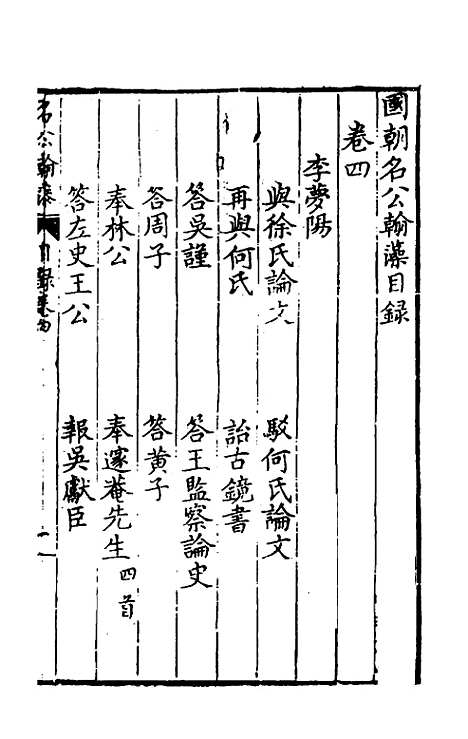 國朝名公翰藻目録
卷四
李夢陽
與徐氏論文 駁何氏論文
再與何氏 詒古鏡書
答吳謹 答王監察論史
答周子 答黄子
奉林公 奉邃菴先生四首
答左史王公 報吳獻臣
名公翰藻 目録卷四 一